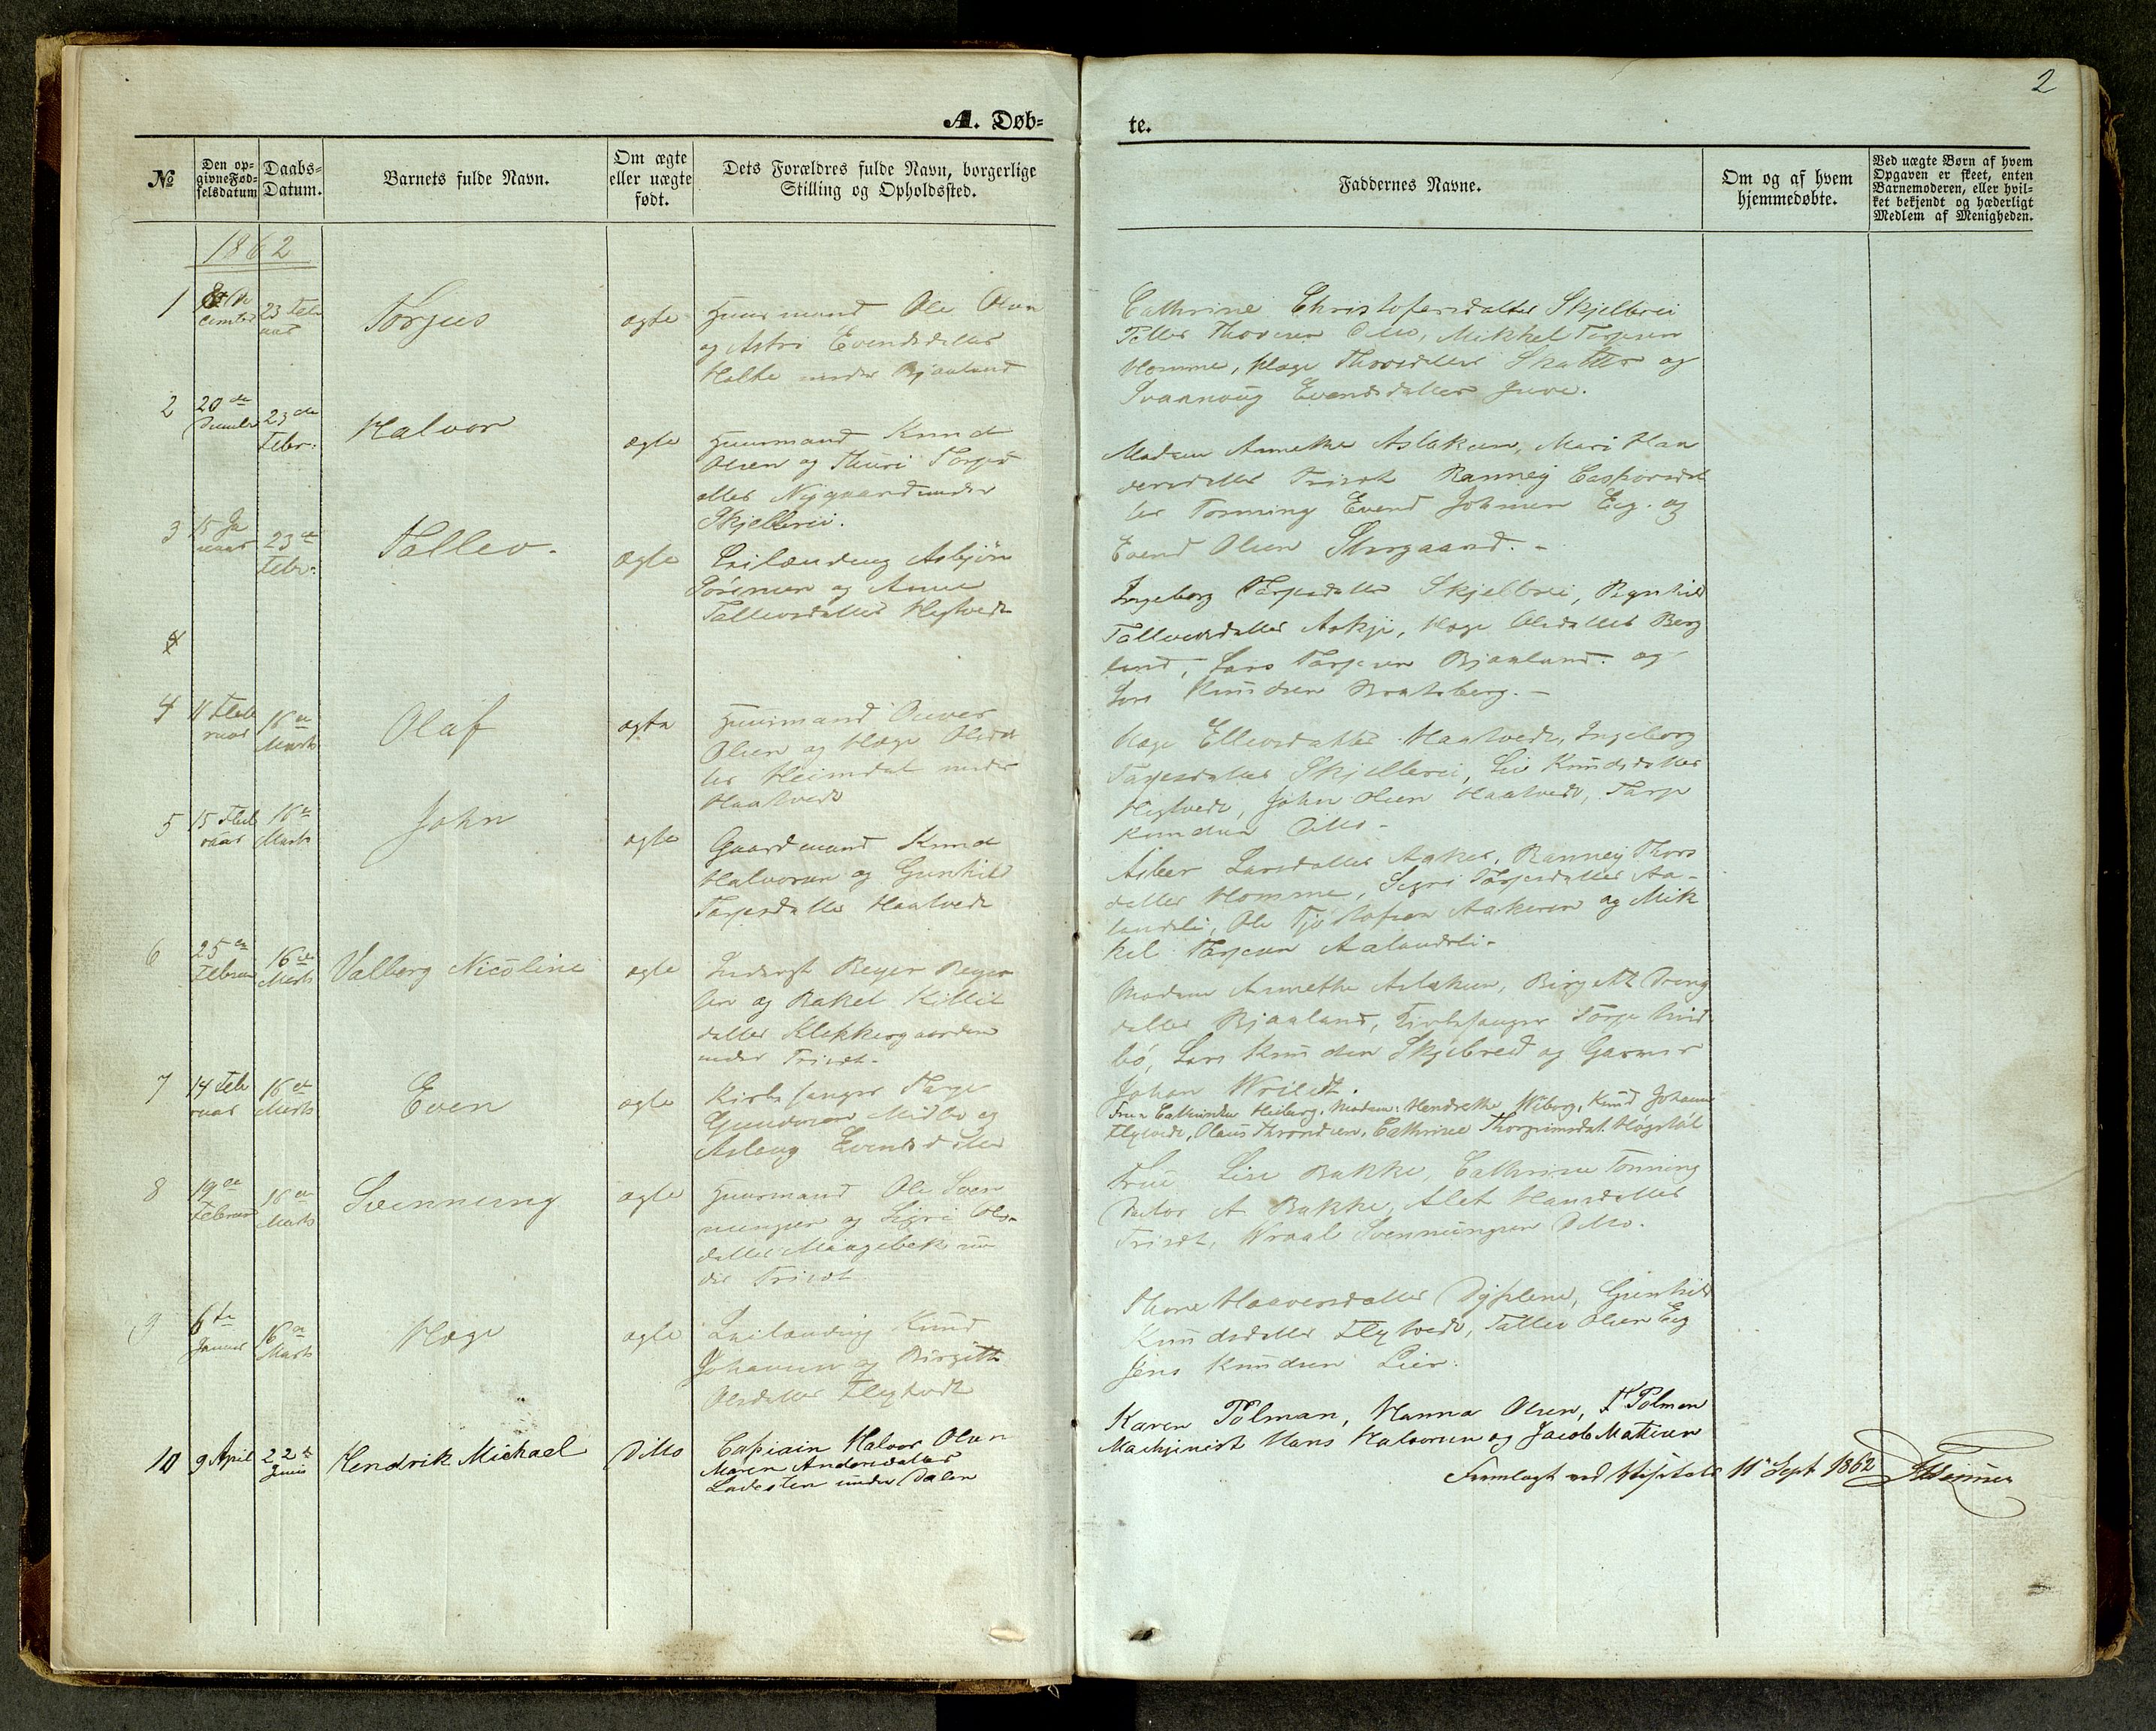 2
A. Døb-
te.
№
Den op-
givne Fød-
selsdatum
Daabs-
Datum.
Barnets fulde Navn.
Om ægte
eller uægte
født.
Dets Forældres fulde Navn, borgerlige
Stilling og Opholdssted.
Faddernes Navne.
Om og af hvem
hjemmedøbte.
Ved uægte Børn af hvem
Opgaven er skeet, enten
Barnemoderen, eller hvil-
ket bekjendt og hæderligt
Medlem af Menigheden.
1862
1
De
cember
23 Febr
uar
Torjus
ægte
Huusmand Ole Olsen
og Astri Evendsdatter
Holte under Bjaaland
Cathrine Christofersdatter Skjelbrei
Ditto, Mikkel Terjesen
Homme, Hæge Thorsdatter Skatter og
Svaanaug Evendsdatter Juve.
2
20de
December
23de
Febr.
Halvor
ægte
Huusmand Knud
Olsen og Thuri Torjus
datter Nygaard under
Skjelbrei.
Madam Annethe Aslaksen, Mari Haa
versdatter Triset Ranneij Caspersdat
ter Tonning Evend Johnsen Eeg. og
Evend Olsen Storgaard. -
3
15 Ja
nuar
23de
Febr.
Tallev.
ægte
Leilænding Asbjøn
og Anne
Tallevsdatter Hegtvedt
Ingeborg Tarjesdatter Skjelbrei, Rynhild
Tallevsdatter Askje, Hæge Olsdatter Berg
land, Lars Tarjesen Bjaaland. og
Lars Knudsen Bratsberg. -
4
4
11 Feb
ruar
16de
Marts
Olaf
ægte
Huusmand
Olsen og Hæge Olsdat
ter Heimdal under
Haatvedt
Hæge Ellevsdatter Haatvedt, Ingeborg
Tarjesdatter Skjelbrei, Liv Knudsdatter
Hegtvedt, John Olsen Haatvedt, Tarje
Knudsen Ditto -
5
15 Feb
ruar
16de
Marts
John
ægte
Gaardmand Knud
Halvorsen og Gunhild
Tarjesdatter Haatvedt
Larsdatter Aaker, Ranneij Thors
datter Homme, Sigri Tarjesdatter Aa-
landsli, Ole Tjostofsen Aakeren og Mik
kel Tarjesen Aalandsli -
6
25de
Februar
16de
Marts
Valborg Nicoline
ægte
Inderst Beyer Beyer
og Rakel Kittils
datter Klokkergaarden
under Triset -
Madam Annethe Aslaksen, Birgitte
datter Bjaaland, Kirkesanger Tarje Mid
bø, Lars Knudsen Skjelbred og Garver
Johan Wrildt.
7
14 Feb
ruar
16de
Marts
Even
ægte
Kirkesanger Tarje
Gundersen Midbø og
Aslaug Evendsdatter
Frue Cathinka Heiberg. Madam: Hendrikke Wiborg, Knud Johannes
Flytvedt, Olaus Throndsen, Cathrine Thorgrimsdat. Høgstøl
8
19de
Februar
16de
Marts
Svennung
ægte
Huusmand Ole Sven
nungsen og Sigri Ols-
datter un
der Triset
Frue Lise Bakke, Cathrine Tonning
Doctor A Bakke, Alet Hansdatter
Triset, Wraal Svennungsen Ditto.
9
6te
Januar
16de
Marts
Hæge
ægte
Leilænding Knud
Johannesen og Birgitte
Olsdatter Flytvedt
Thone Haaversdatter Gunhild
Knudsdatter Flytvedt, Tallev Olsen Eeg
Jens Knudsen Lien.
10
9 April
22de
Junii
Hendrik Michael
Ditto
Captain Halvor Olsen
Maren Andersdatter
Ladesten under Dalen
Karen Polman, Hanna Olsen, F. Polman
Machjinist Hans Halvorsen og Jacob Matisen
Fremlagt ved Visitats 11te Sept 1862